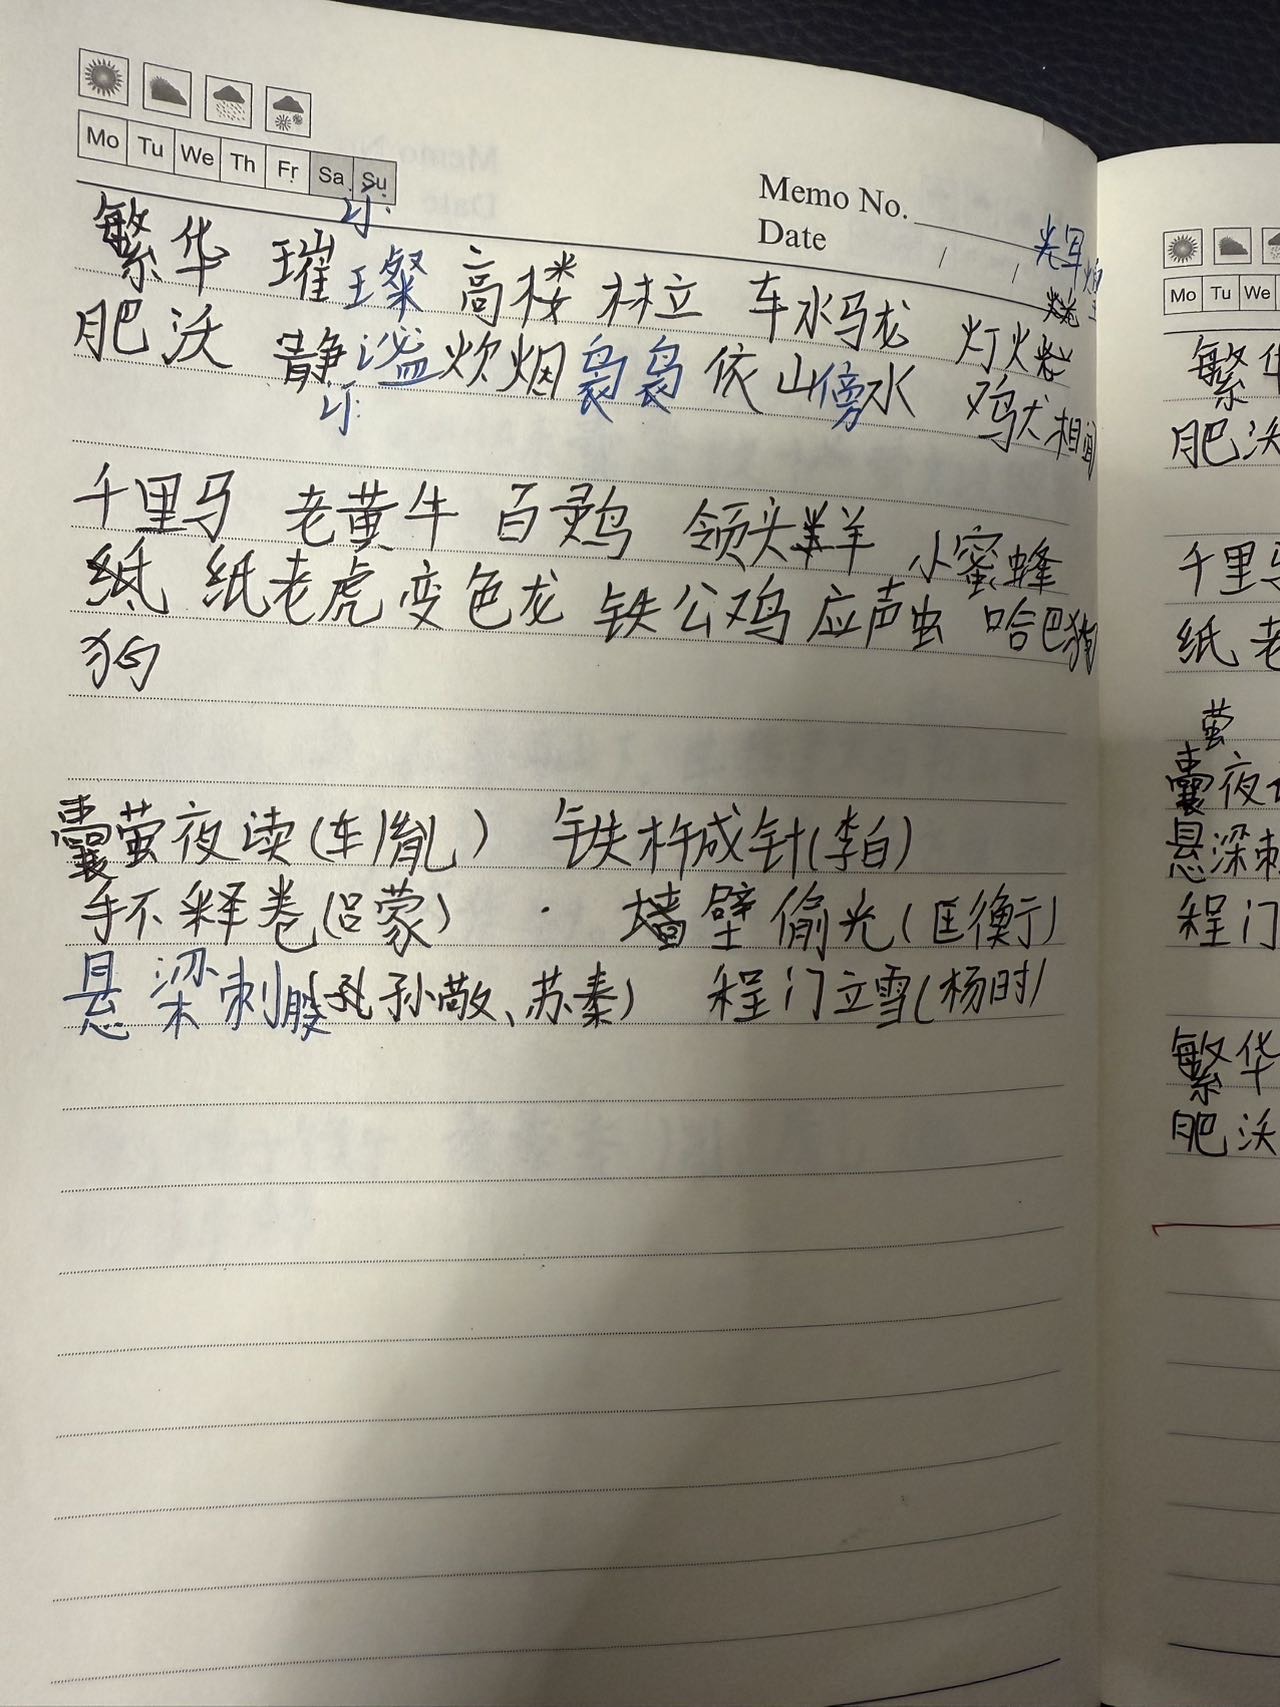 Mo Tu We Th Fr Sa Su
Memo No.
Date / /
繁华 璀璨 高楼林立 车水马龙 灯火辉煌
肥沃 静谧 炊烟袅袅 依山傍水 鸡犬相闻
千里马 老黄牛 百灵鸟 领头羊 小蜜蜂
纸老虎 变色龙 铁公鸡 应声虫 哈巴狗
狗
囊萤夜读(车胤) 铁杵成针(李白)
手不释卷(吕蒙) · 墙壁偷光(匡衡)
悬梁刺股(孙敬、苏秦) 程门立雪(杨时)
Mo Tu We
繁华
肥沃
千里马
纸老
萤
囊夜
悬梁刺
程门
繁华
肥沃